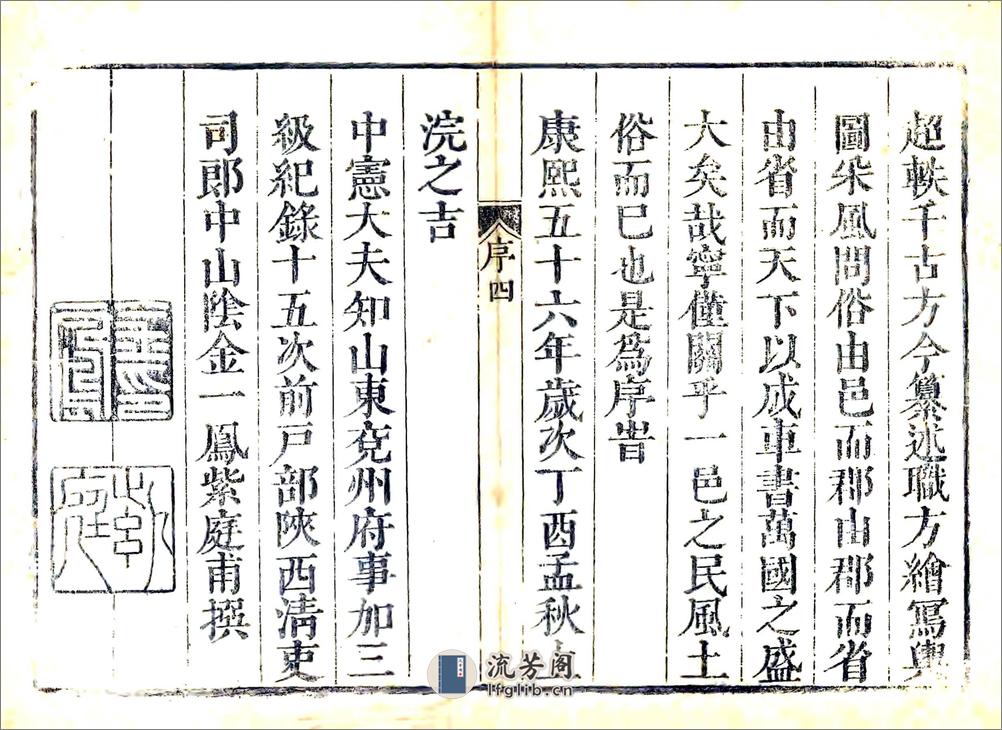 超軼千古方今纂述職方繪寫輿
圖采風問俗由邑而郡由郡而省
由省而天下以成車書萬國之盛
大矣哉寧僅關乎一邑之民風土
俗而已也是為序旹
康熙五十六年歲次丁酉孟秋上
序 四
浣之吉
中憲大夫知山東兗州府事加三
級紀錄十五次前戶部陝西清吏
司郎中山陰金一鳳紫庭甫撰
流芳阁
lfglib.cn